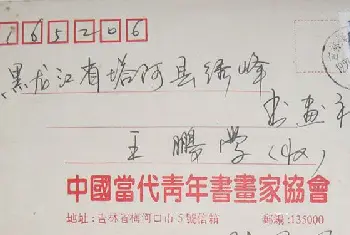 165206
黑龙江省塔河县绣峰
书画
王鹏学(收)
中國當代青年書畫家協會
地址:吉林省梅河口市5號信箱 郵編:135000